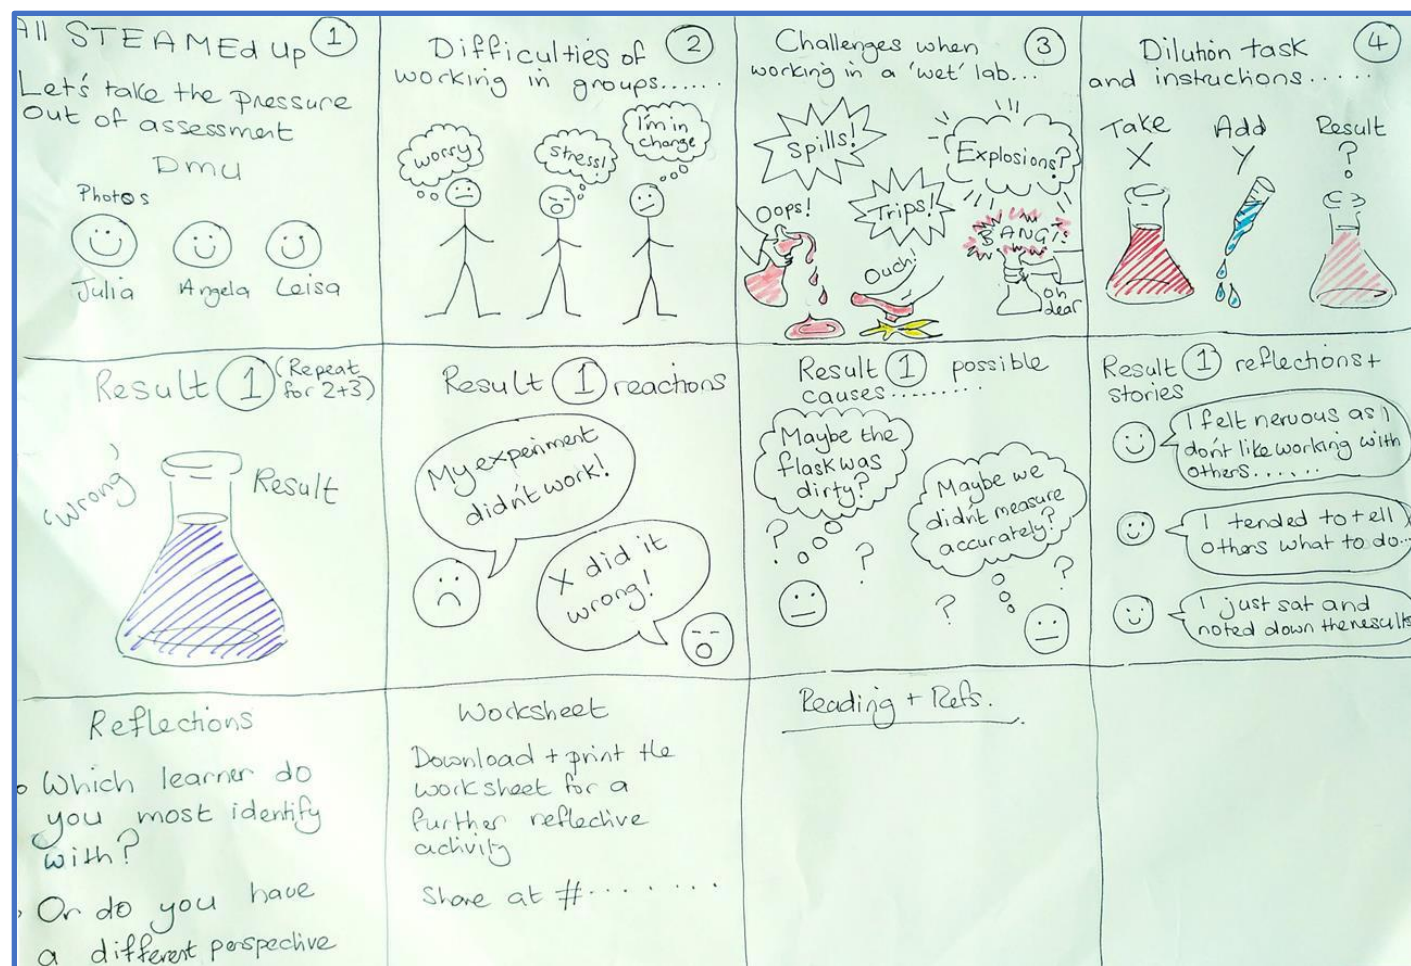 All STEAMEd up 1
Let's take the pressure
out of assessment
Dmu
Photos
Julia Angela Leisa
Difficulties of 2
working in groups......
worry
stress!
I'm in
change
Challenges when 3
working in a 'wet' lab...
Spills!
Explosions?
Oops!
Trips!
BANG!!
Ouch!
oh
dear
Dilution task 4
and instructions.....
Take Add Result
X Y ?
Result 1 (Repeat
for 2+3)
'wrong'
Result
Result 1 reactions
My experiment
didn't work!
X did it
wrong!
Result 1 possible
causes........
Maybe the
flask was
dirty?
Maybe we
didn't measure
accurately?
? ? ? ?
Result 1 reflections +
stories
I felt nervous as I
don't like working with
others......
I tended to tell
others what to do...
I just sat and
noted down the results
Reflections
Which learner do
you most identify
with?
Or do you have
a different perspective
Worksheet
Download + print the
worksheet for a
further reflective
activity
Share at #........
Reading + Refs.